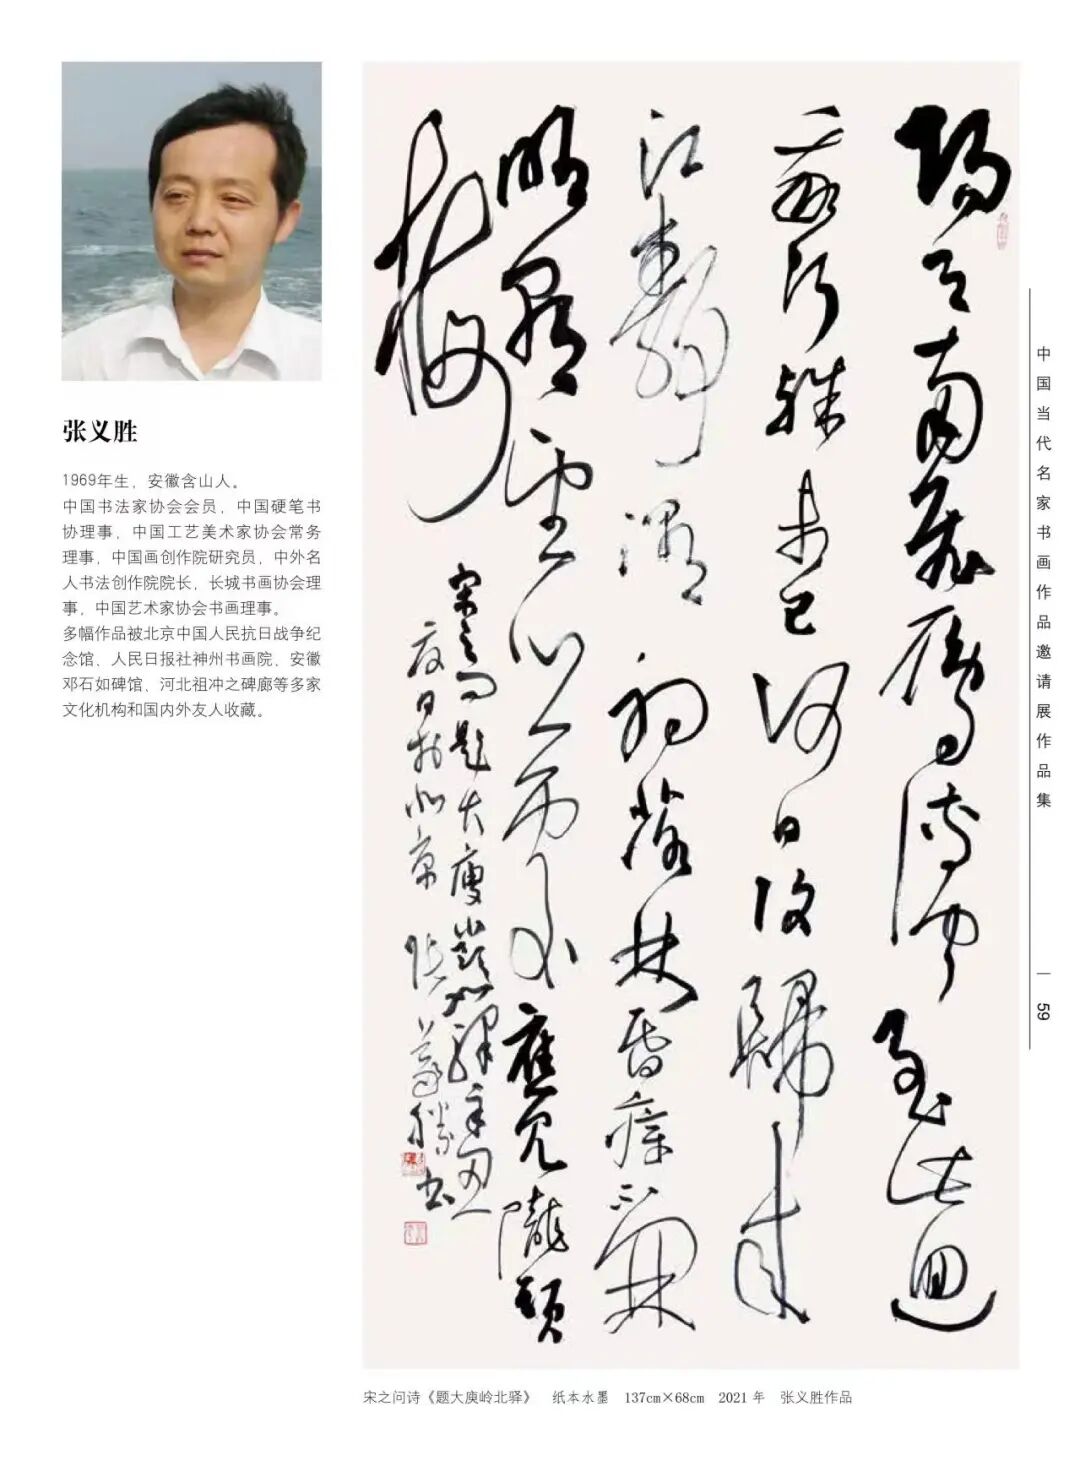 张义胜
1969年生，安徽含山人。
中国书法家协会会员，中国硬笔书
协理事，中国工艺美术家协会常务
理事，中国画创作院研究员，中外名
人书法创作院院长，长城书画协会理
事，中国艺术家协会书画理事。
多幅作品被北京中国人民抗日战争纪
念馆、人民日报社神州书画院、安徽
邓石如碑馆、河北祖冲之碑廊等多家
文化机构和国内外友人收藏。
陽月南飛雁傳聞至此迴
我行殊未已何日復歸来
江静潮初落林昏瘴不開
明朝望鄉處應見隴頭
梅
宋之問題大庾嶺北驛辛丑
夏日於北京張義勝書
宋之问诗《题大庾岭北驿》 纸本水墨 137cm×68cm 2021 年 张义胜作品
中国当代名家书画作品邀请展作品集
59